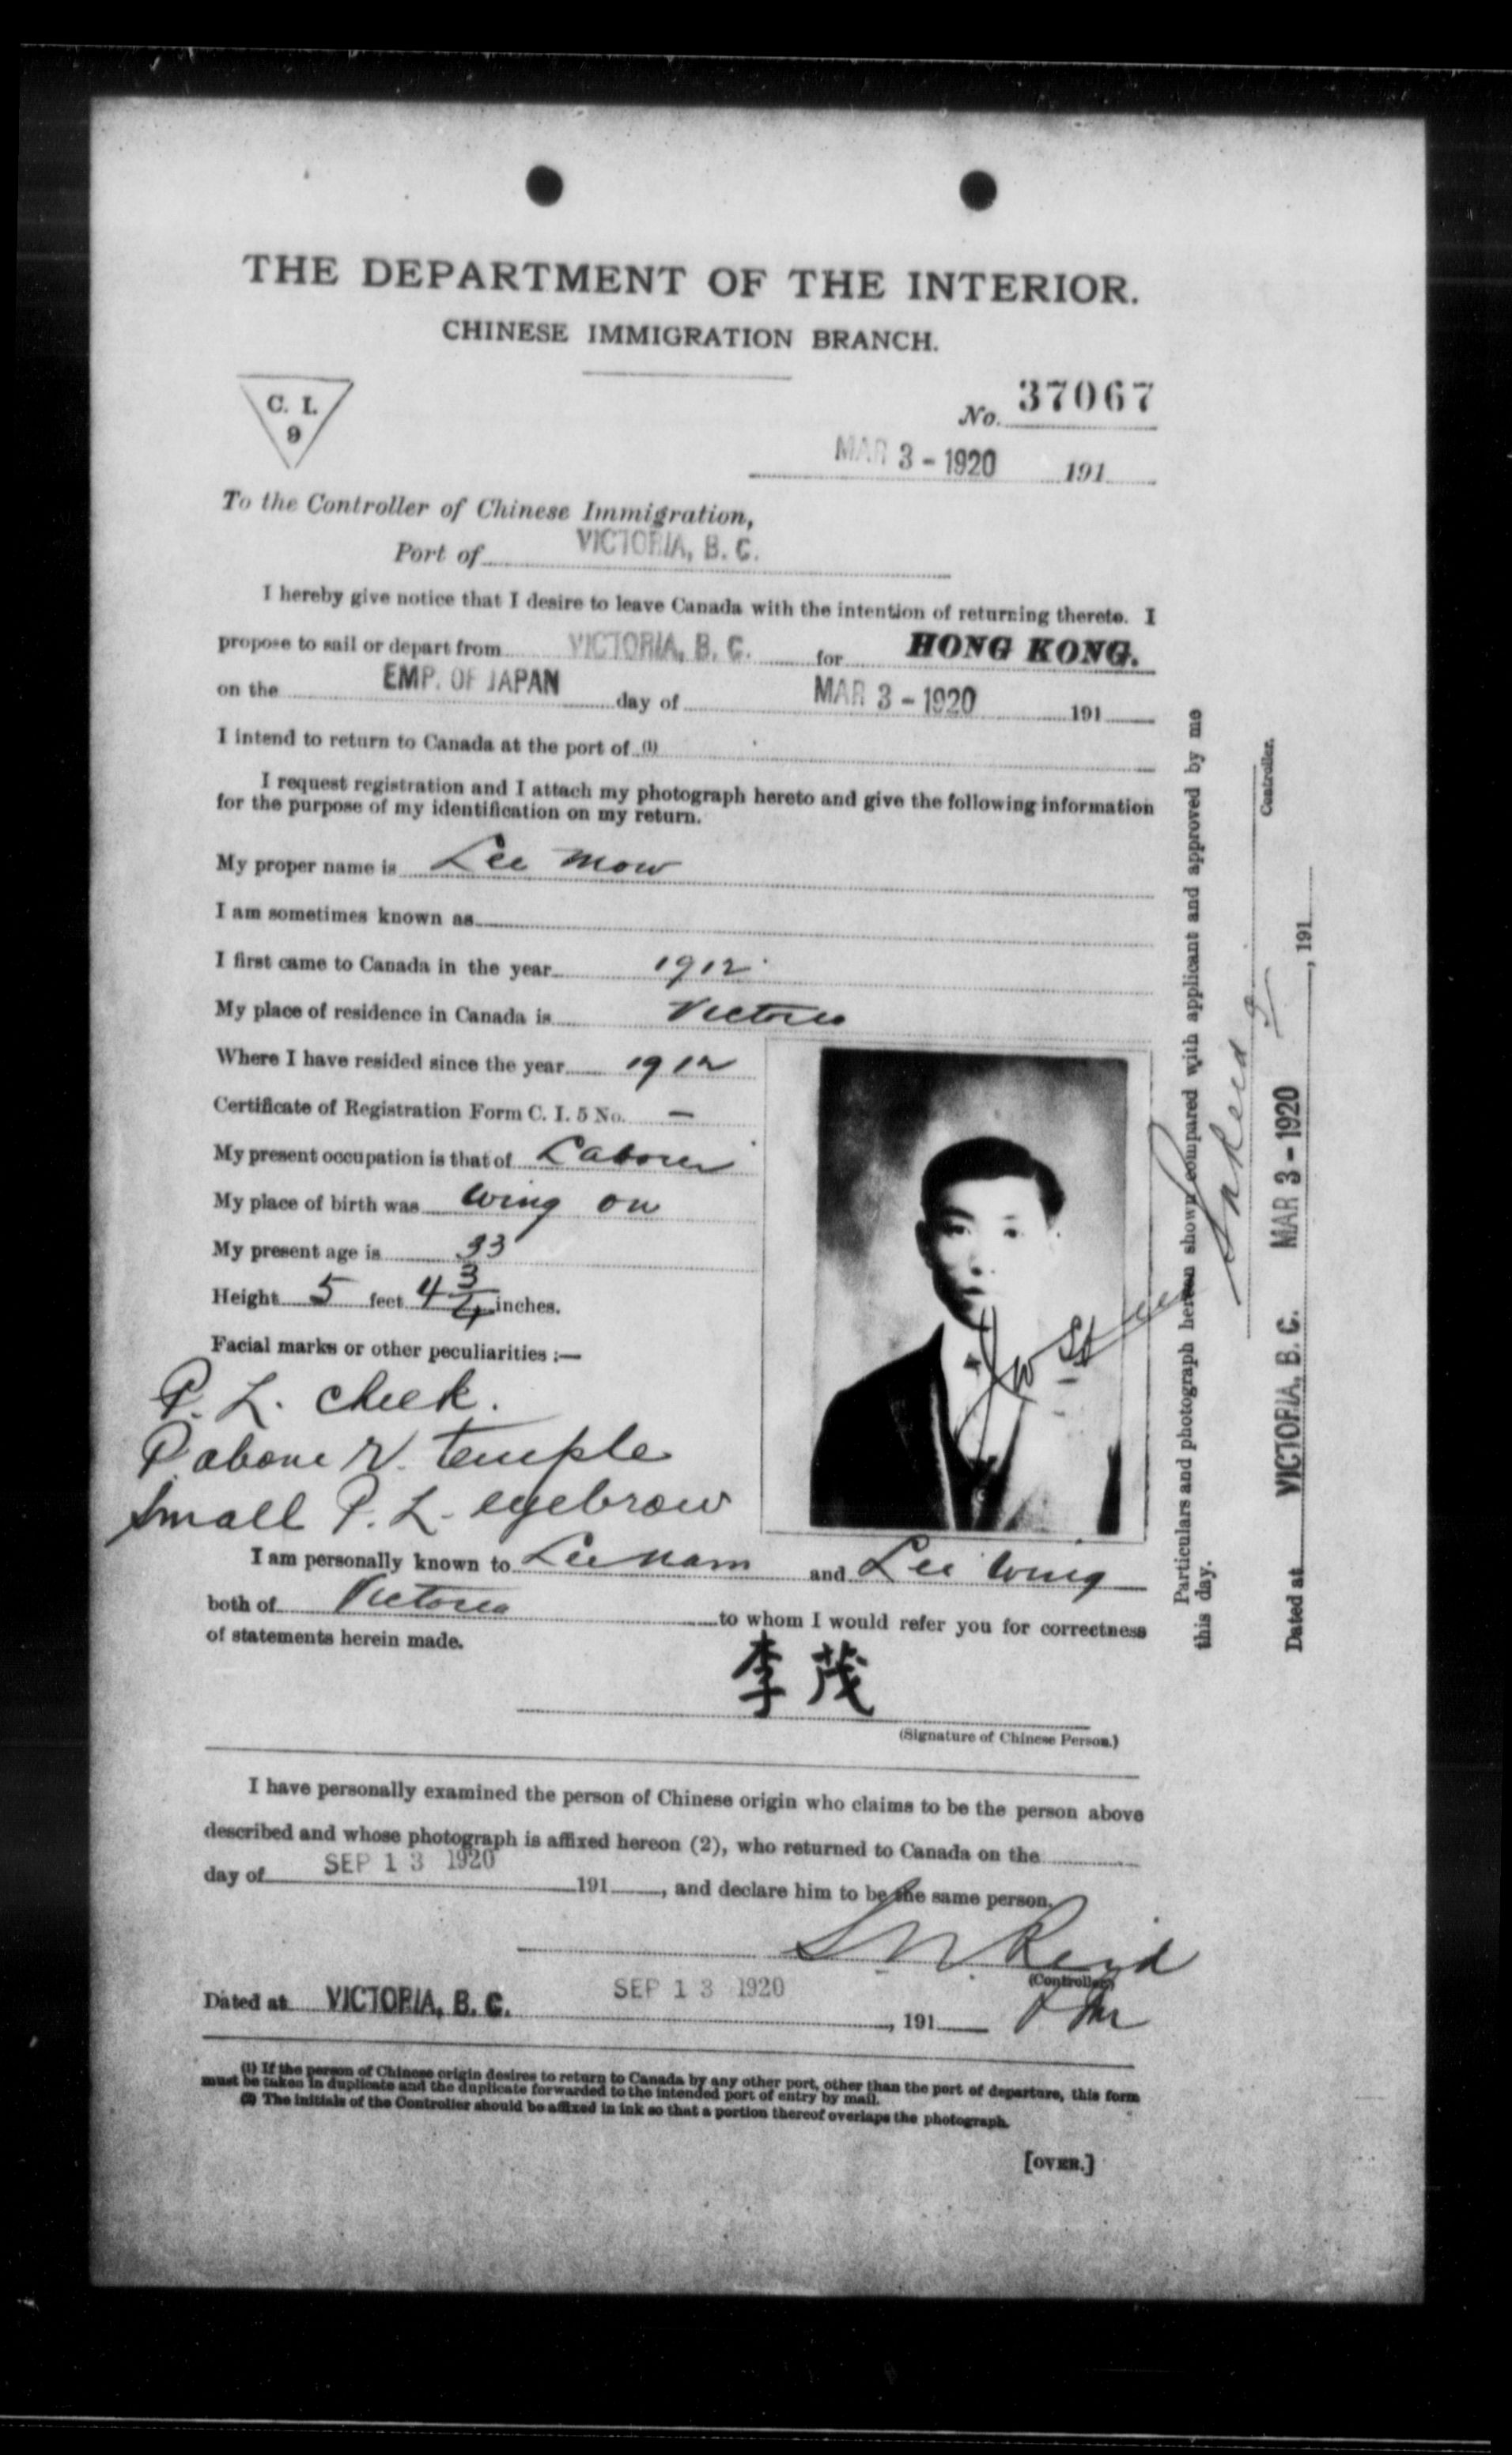 THE DEPARTMENT OF THE INTERIOR.
CHINESE IMMIGRATION BRANCH.
C. I.
9
No. 37067
MAR 3 - 1920 191
To the Controller of Chinese Immigration,
Port of VICTORIA, B. C.
I hereby give notice that I desire to leave Canada with the intention of returning thereto. I
propose to sail or depart from VICTORIA, B. C. for HONG KONG.
on the EMP. OF JAPAN day of MAR 3 - 1920 191
I intend to return to Canada at the port of (1)
I request registration and I attach my photograph hereto and give the following information
for the purpose of my identification on my return.
My proper name is Lee Mow
I am sometimes known as
I first came to Canada in the year 1912
My place of residence in Canada is Victoria
Where I have resided since the year 1912
Certificate of Registration Form C. I. 5 No. —
My present occupation is that of Laborer
My place of birth was Wing On
My present age is 33
Height 5 feet 4 3/4 inches.
Facial marks or other peculiarities :—
P. L. cheek.
P. above R. temple
Small P. L. eyebrow
I am personally known to Lee Nam and Lee Wing
both of Victoria to whom I would refer you for correctness
of statements herein made.
李茂
(Signature of Chinese Person.)
I have personally examined the person of Chinese origin who claims to be the person above
described and whose photograph is affixed hereon (2), who returned to Canada on the
day of SEP 13 1920 191, and declare him to be the same person.
(Controller)
Dated at VICTORIA, B. C. SEP 13 1920, 191
(1) If the person of Chinese origin desires to return to Canada by any other port, other than the port of departure, this form
must be taken in duplicate and the duplicate forwarded to the intended port of entry by mail.
(2) The initials of the Controller should be affixed in ink so that a portion thereof overlaps the photograph.
[OVER.]
Particulars and photograph hereon shown compared with applicant and approved by me
this day.
Controller.
Dated at VICTORIA, B. C. MAR 3 - 1920, 191